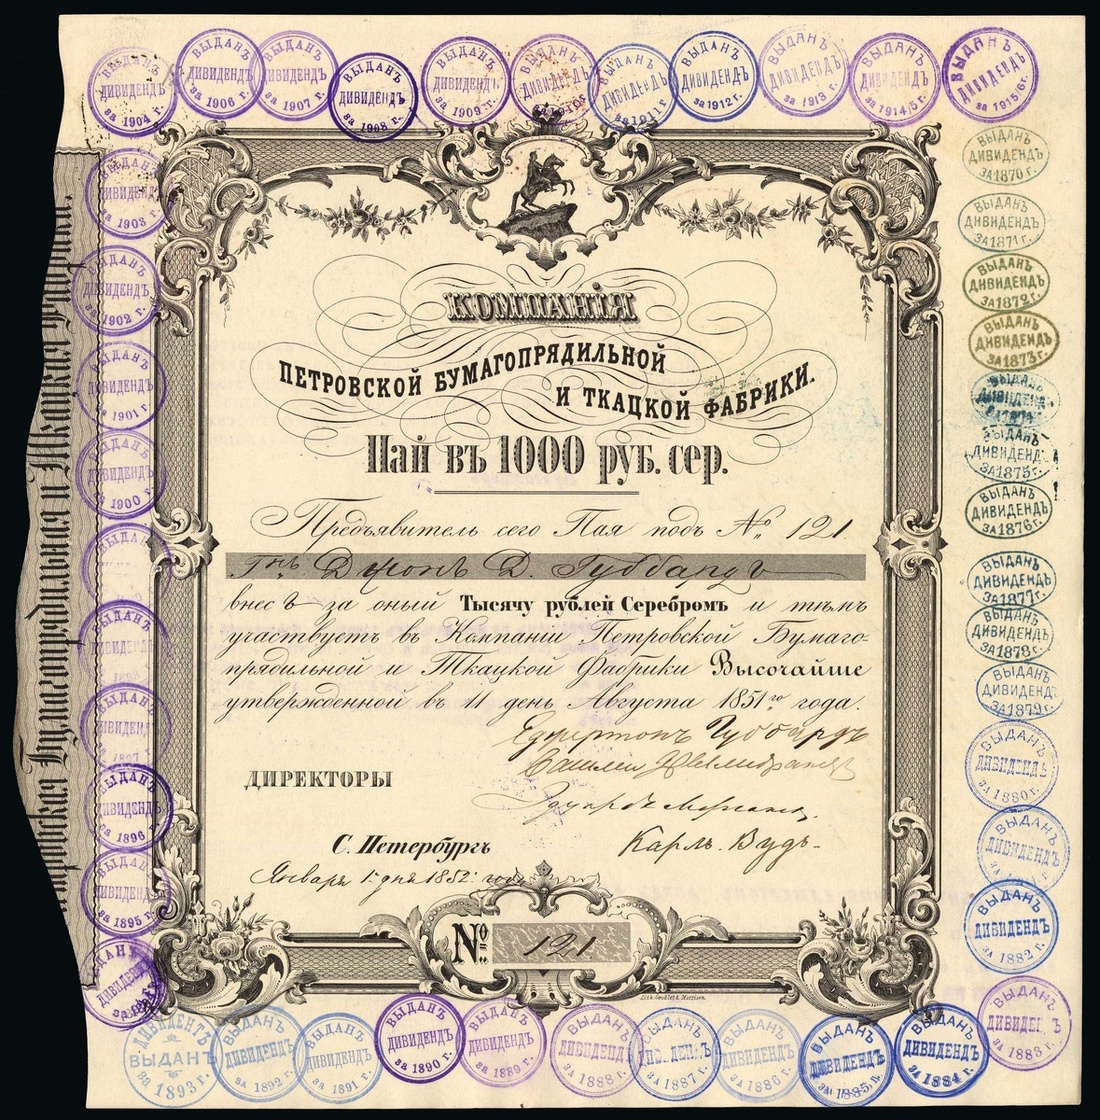 ВЫДАНЪ ДИВИДЕНДЪ за 1904 г.
ВЫДАНЪ ДИВИДЕНДЪ за 1906 г.
ВЫДАНЪ ДИВИДЕНДЪ за 1907 г.
ВЫДАНЪ ДИВИДЕНДЪ за 1908 г.
ВЫДАНЪ ДИВИДЕНДЪ за 1909 г.
ВЫДАНЪ ДИВИДЕНДЪ
ВЫДАНЪ ДИВИДЕНДЪ за 1911 г.
ВЫДАНЪ ДИВИДЕНДЪ за 1912 г.
ВЫДАНЪ ДИВИДЕНДЪ за 1913 г.
ВЫДАНЪ ДИВИДЕНДЪ за 1914/5 г.
ВЫДАНЪ ДИВИДЕНДЪ за 1915/6 г.
ВЫДАНЪ ДИВИДЕНДЪ ЗА 1870 г.
ВЫДАНЪ ДИВИДЕНДЪ ЗА 1871 г.
ВЫДАНЪ ДИВИДЕНДЪ ЗА 1872 г.
ВЫДАНЪ ДИВИДЕНДЪ ЗА 1873 г.
ВЫДАНЪ ДИВИДЕНДЪ
ВЫДАНЪ ДИВИДЕНДЪ ЗА 1875 г.
ВЫДАНЪ ДИВИДЕНДЪ ЗА 1876 г.
ВЫДАНЪ ДИВИДЕНДЪ ЗА 1877 г.
ВЫДАНЪ ДИВИДЕНДЪ ЗА 1878 г.
ВЫДАНЪ ДИВИДЕНДЪ ЗА 1879 г.
ВЫДАНЪ ДИВИДЕНДЪ ЗА 1880 г.
ВЫДАНЪ ДИВИДЕНДЪ
ВЫДАНЪ ДИВИДЕНДЪ ЗА 1882 г.
ВЫДАНЪ ЗА 1883 г.
ВЫДАНЪ ДИВИДЕНДЪ ЗА 1884 г.
ВЫДАНЪ ДИВИДЕНДЪ ЗА 1885 г.
ВЫДАНЪ ДИВИДЕНДЪ ЗА 1886 г.
ВЫДАНЪ ЗА 1887 г.
ВЫДАНЪ ДИВИДЕНДЪ ЗА 1888 г.
ВЫДАНЪ ДИВИДЕНДЪ за 1889 г.
ВЫДАНЪ ДИВИДЕНДЪ за 1890 г.
ВЫДАНЪ ДИВИДЕНДЪ за 1891 г.
ВЫДАНЪ ДИВИДЕНДЪ за 1892 г.
ДИВИДЕНТЪ ВЫДАНЪ за 1893 г.
ВЫДАНЪ ДИВИДЕНДЪ
ВЫДАНЪ ДИВИДЕНДЪ за 1895 г.
ВЫДАНЪ ДИВИДЕНДЪ за 1896 г.
ВЫДАНЪ ДИВИДЕНДЪ 1897 г.
ВЫДАНЪ ДИВИДЕНДЪ
ВЫДАНЪ ДИВИДЕНДЪ
ВЫДАНЪ ДИВИДЕНДЪ за 1900 г.
ВЫДАНЪ ДИВИДЕНДЪ за 1901 г.
ВЫДАНЪ ДИВИДЕНДЪ за 1902 г.
ВЫДАНЪ ДИВИДЕНДЪ за 1903 г.
Бумагопрядильная и Ткацкая
КОМПАНІЯ
ПЕТРОВСКОЙ БУМАГОПРЯДИЛЬНОЙ
И ТКАЦКОЙ ФАБРИКИ.
Пай въ 1000 руб. сер.
Предъявитель сего Пая подъ №. 121
Гнъ Джонъ Д. Губбардъ
внесъ за оный Тысячу рублей Серебромъ и тѣмъ
участвуетъ въ Компаніи Петровской Бумаго-
прядильной и Ткацкой Фабрики Высочайше
утвержденной въ 11 день Августа 1851го года.
Еджертонъ Губбардъ
ДИРЕКТОРЫ
Эдуардъ
С. Петербургъ
Карлъ Вудъ
Января 1 дня 1852 года
№ 121.